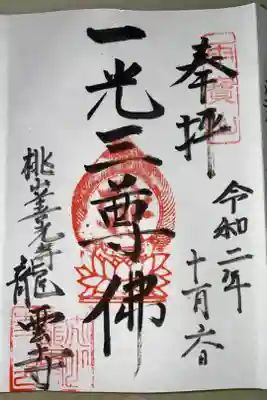 奉拝
令和二年
十一月六日
一光三尊佛
善光寺 龍雲寺